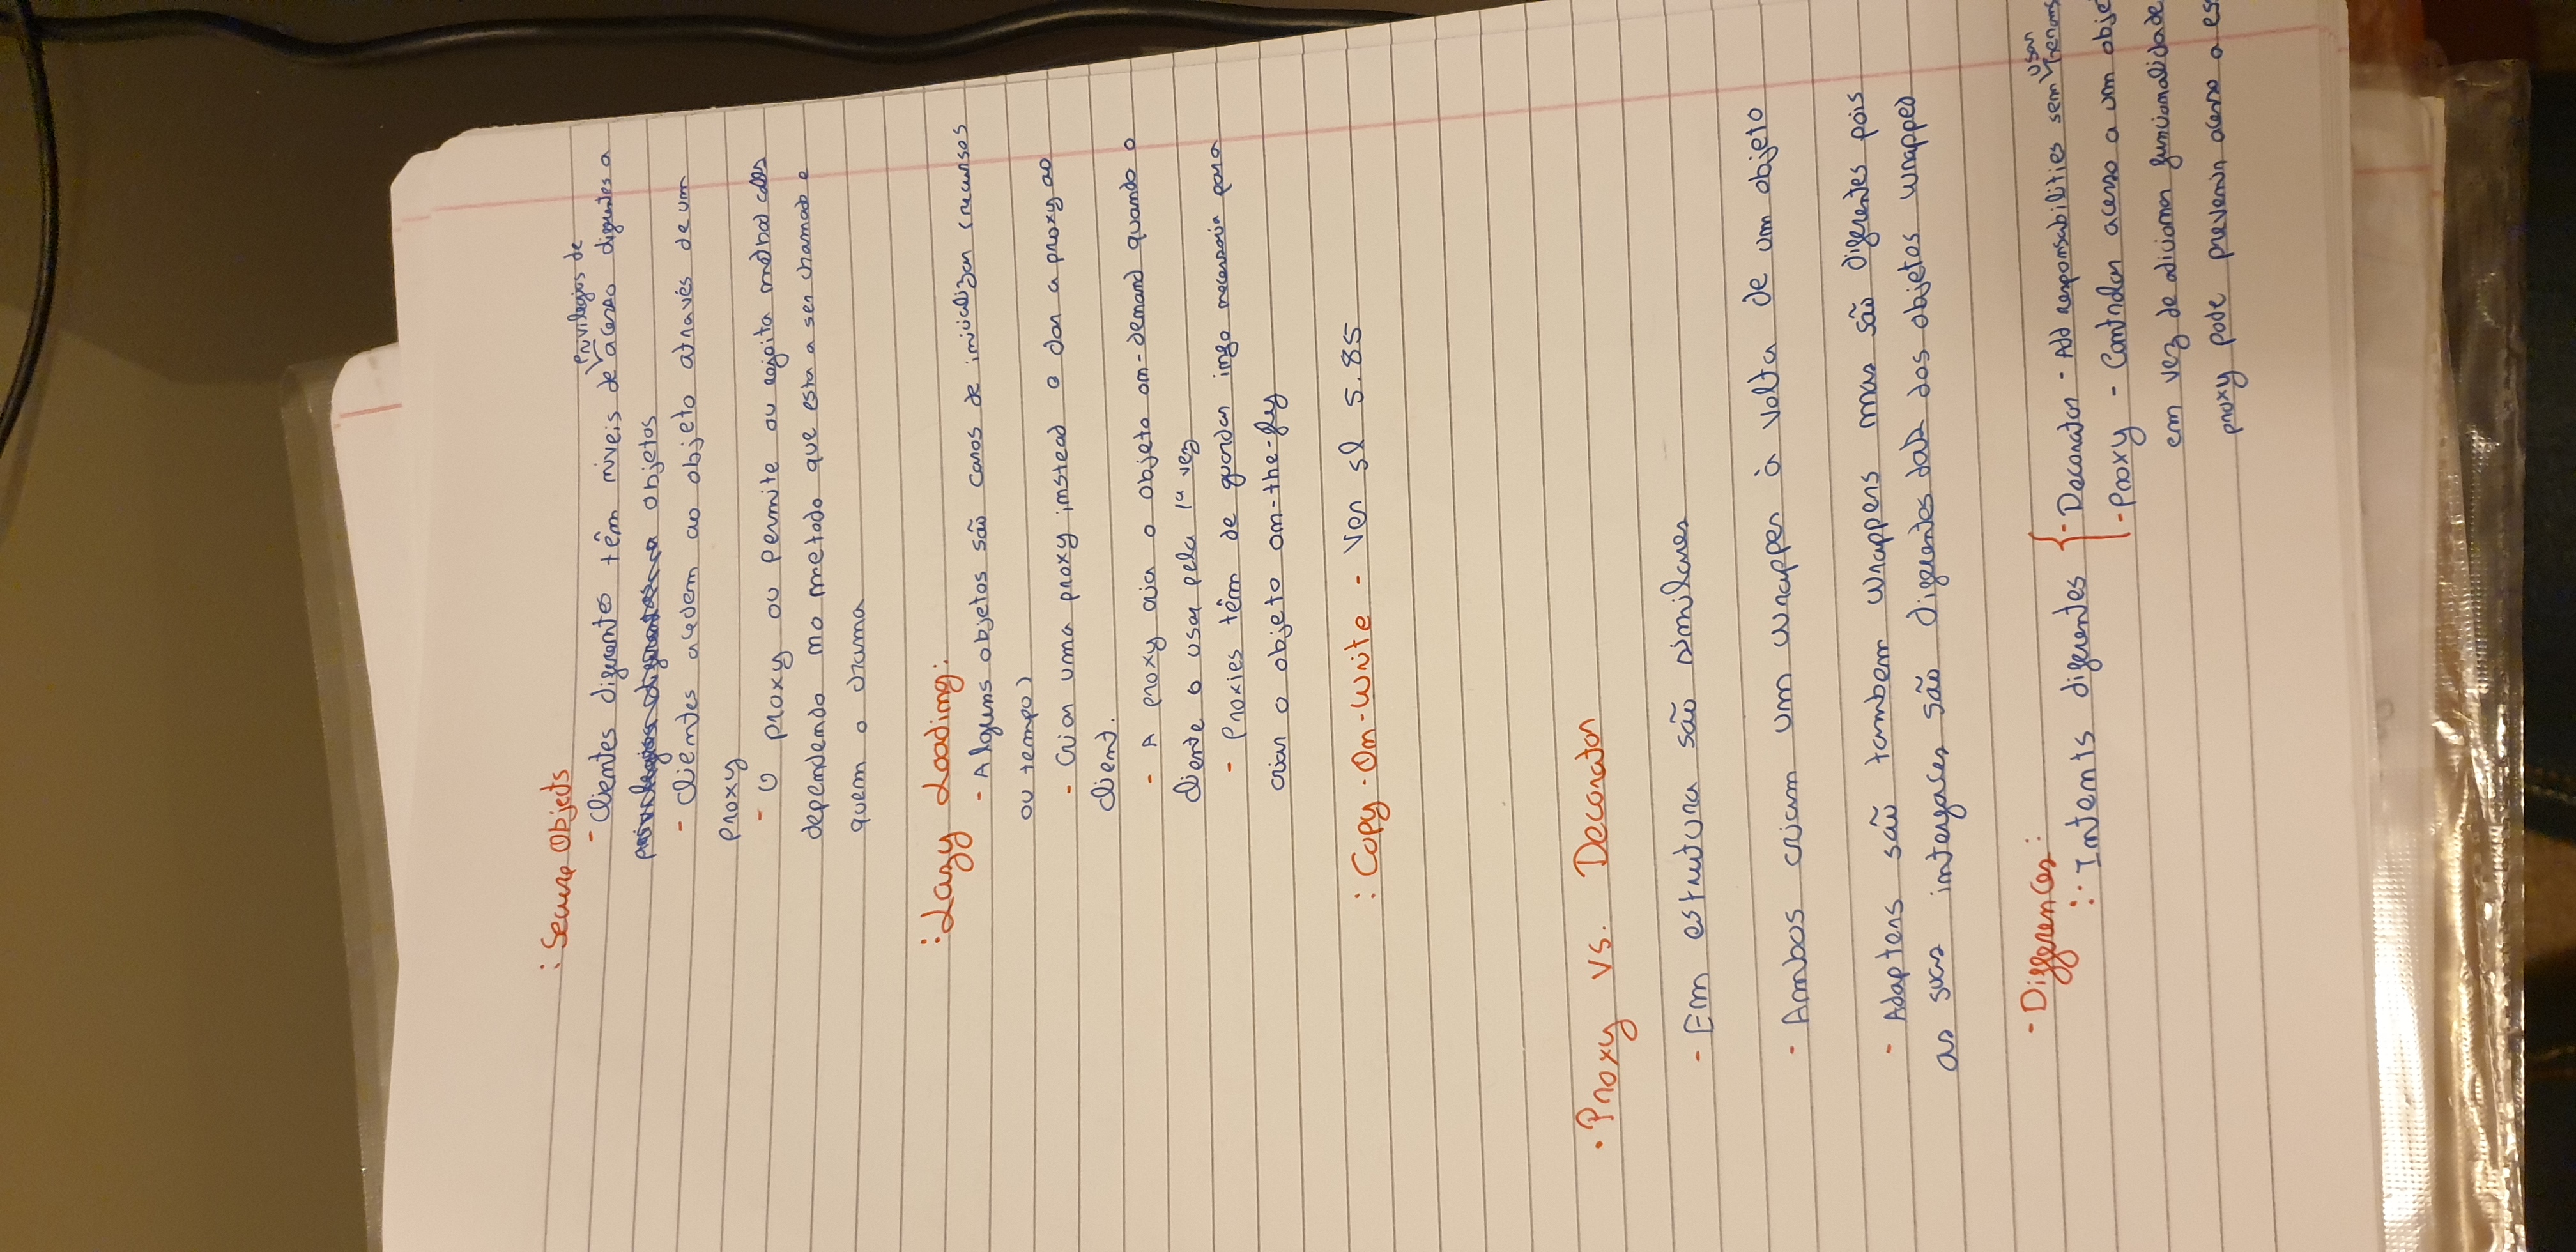 : Secure Objects
privilegios de
- Clientes diferentes têm niveis de acesso diferentes a
objetos
- Clientes acedem ao objeto através de um
proxy
- O proxy ou permite ou rejeita method calls
dependendo no metodo que esta a ser chamado e
quem o chama
: Lazy Loading:
- Alguns objetos são caros de inicializar (recursos
ou tempo)
- Criar uma proxy instead e dar a proxy ao
client.
- A proxy cria o objeto on-demand quando o
cliente o usar pela 1ª vez
- Proxies têm de guardar info necessaria para
criar o objeto on-the-fly
: Copy-On-Write - Ver sl 5.85
• Proxy vs. Decorator
- Em estrutura são similares
- Ambos criam um wrapper à volta de um objeto
- Adapters são tambem wrappers mas são diferentes pois
as suas interfaces são diferentes das dos objetos wrapped
- Differences:
:· Intents diferentes
usar
- Decorator - Add responsabilities sem
- Proxy - Controlar acesso a um obje
em vez de adicionar funcionalidade
proxy pode prevenir acesso a es